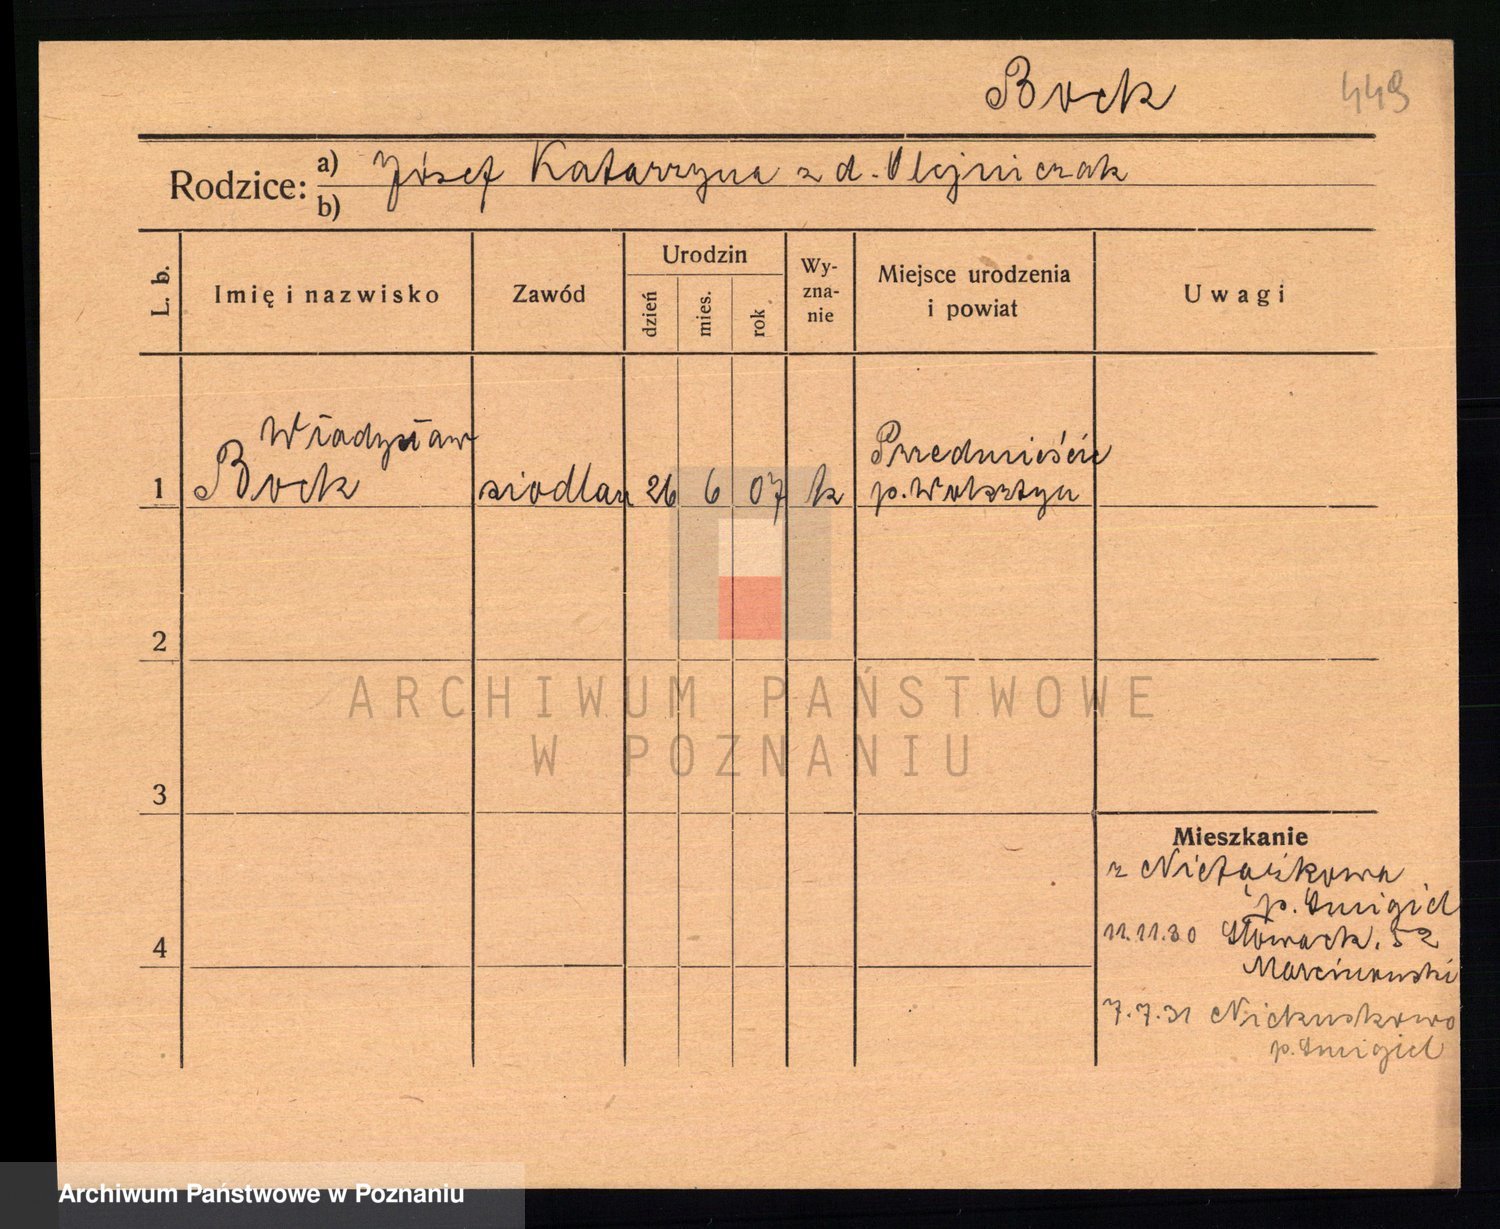 Bock 449
Rodzice: a) Józef Katarzyna z d. Olejniczak
b)
L. b. Imię i nazwisko Zawód Urodzin dzień mies. rok Wy-zna-nie Miejsce urodzenia i powiat Uwagi
Władysław Przedmieście
1 Bock siodlarz 26 6 07 k p. Wolsztyn
2
ARCHIWUM PAŃSTWOWE
W POZNANIU
3
Mieszkanie
z Nietaszkowa
p. Śmigiel
4 11.11.30 Słowack. 52
Marcinowski
7.7.31
p. Śmigiel
Archiwum Państwowe w Poznaniu